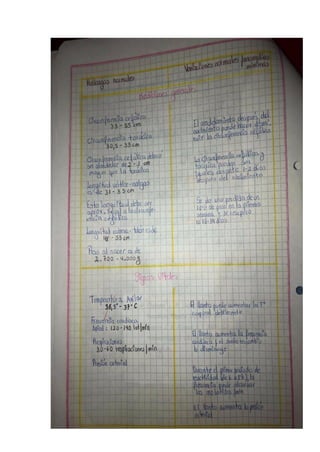 Hallazgos normales
Variaciones normales/anomalías
mínimas
Mediciones generales
Circunferencia cefálica
33 - 35 cm
Circunferencia torácica
30,5 - 33 cm
Circunferencia cefálica deberá
ser alrededor de 2 - 3 cm
mayor que la torácica
Longitud vértice-nalgas
es de 31 - 35 cm
Esta longitud debe ser
aprox. igual a la circunfe-
rencia cefálica
Longitud
48 - 53 cm
Peso al nacer es de
2.700 - 4.000g
El modelamiento después del
nacimiento puede
la circunferencia cefálica
La circunferencia cefálica y
torácica pueden ser
iguales durante 1-2 días
después del nacimiento
Se da una pérdida de un
10% de peso en la primera
semana y se recupera
Signos Vitales
Temperatura: Axilar
36,5° - 37°C
Frecuencia cardiaca
Apical: 120 - 140 lat/min
Respiraciones
30-60 respiraciones/min
Presión arterial
El llanto puede aumentar la T°
corporal
El llanto aumenta la frecuencia
cardiaca y el sueño
la disminuye
Durante el primer periodo de
reactividad (de 6 a 8 h), la
frecuencia puede alcanzar
El llanto aumenta la presión
arterial